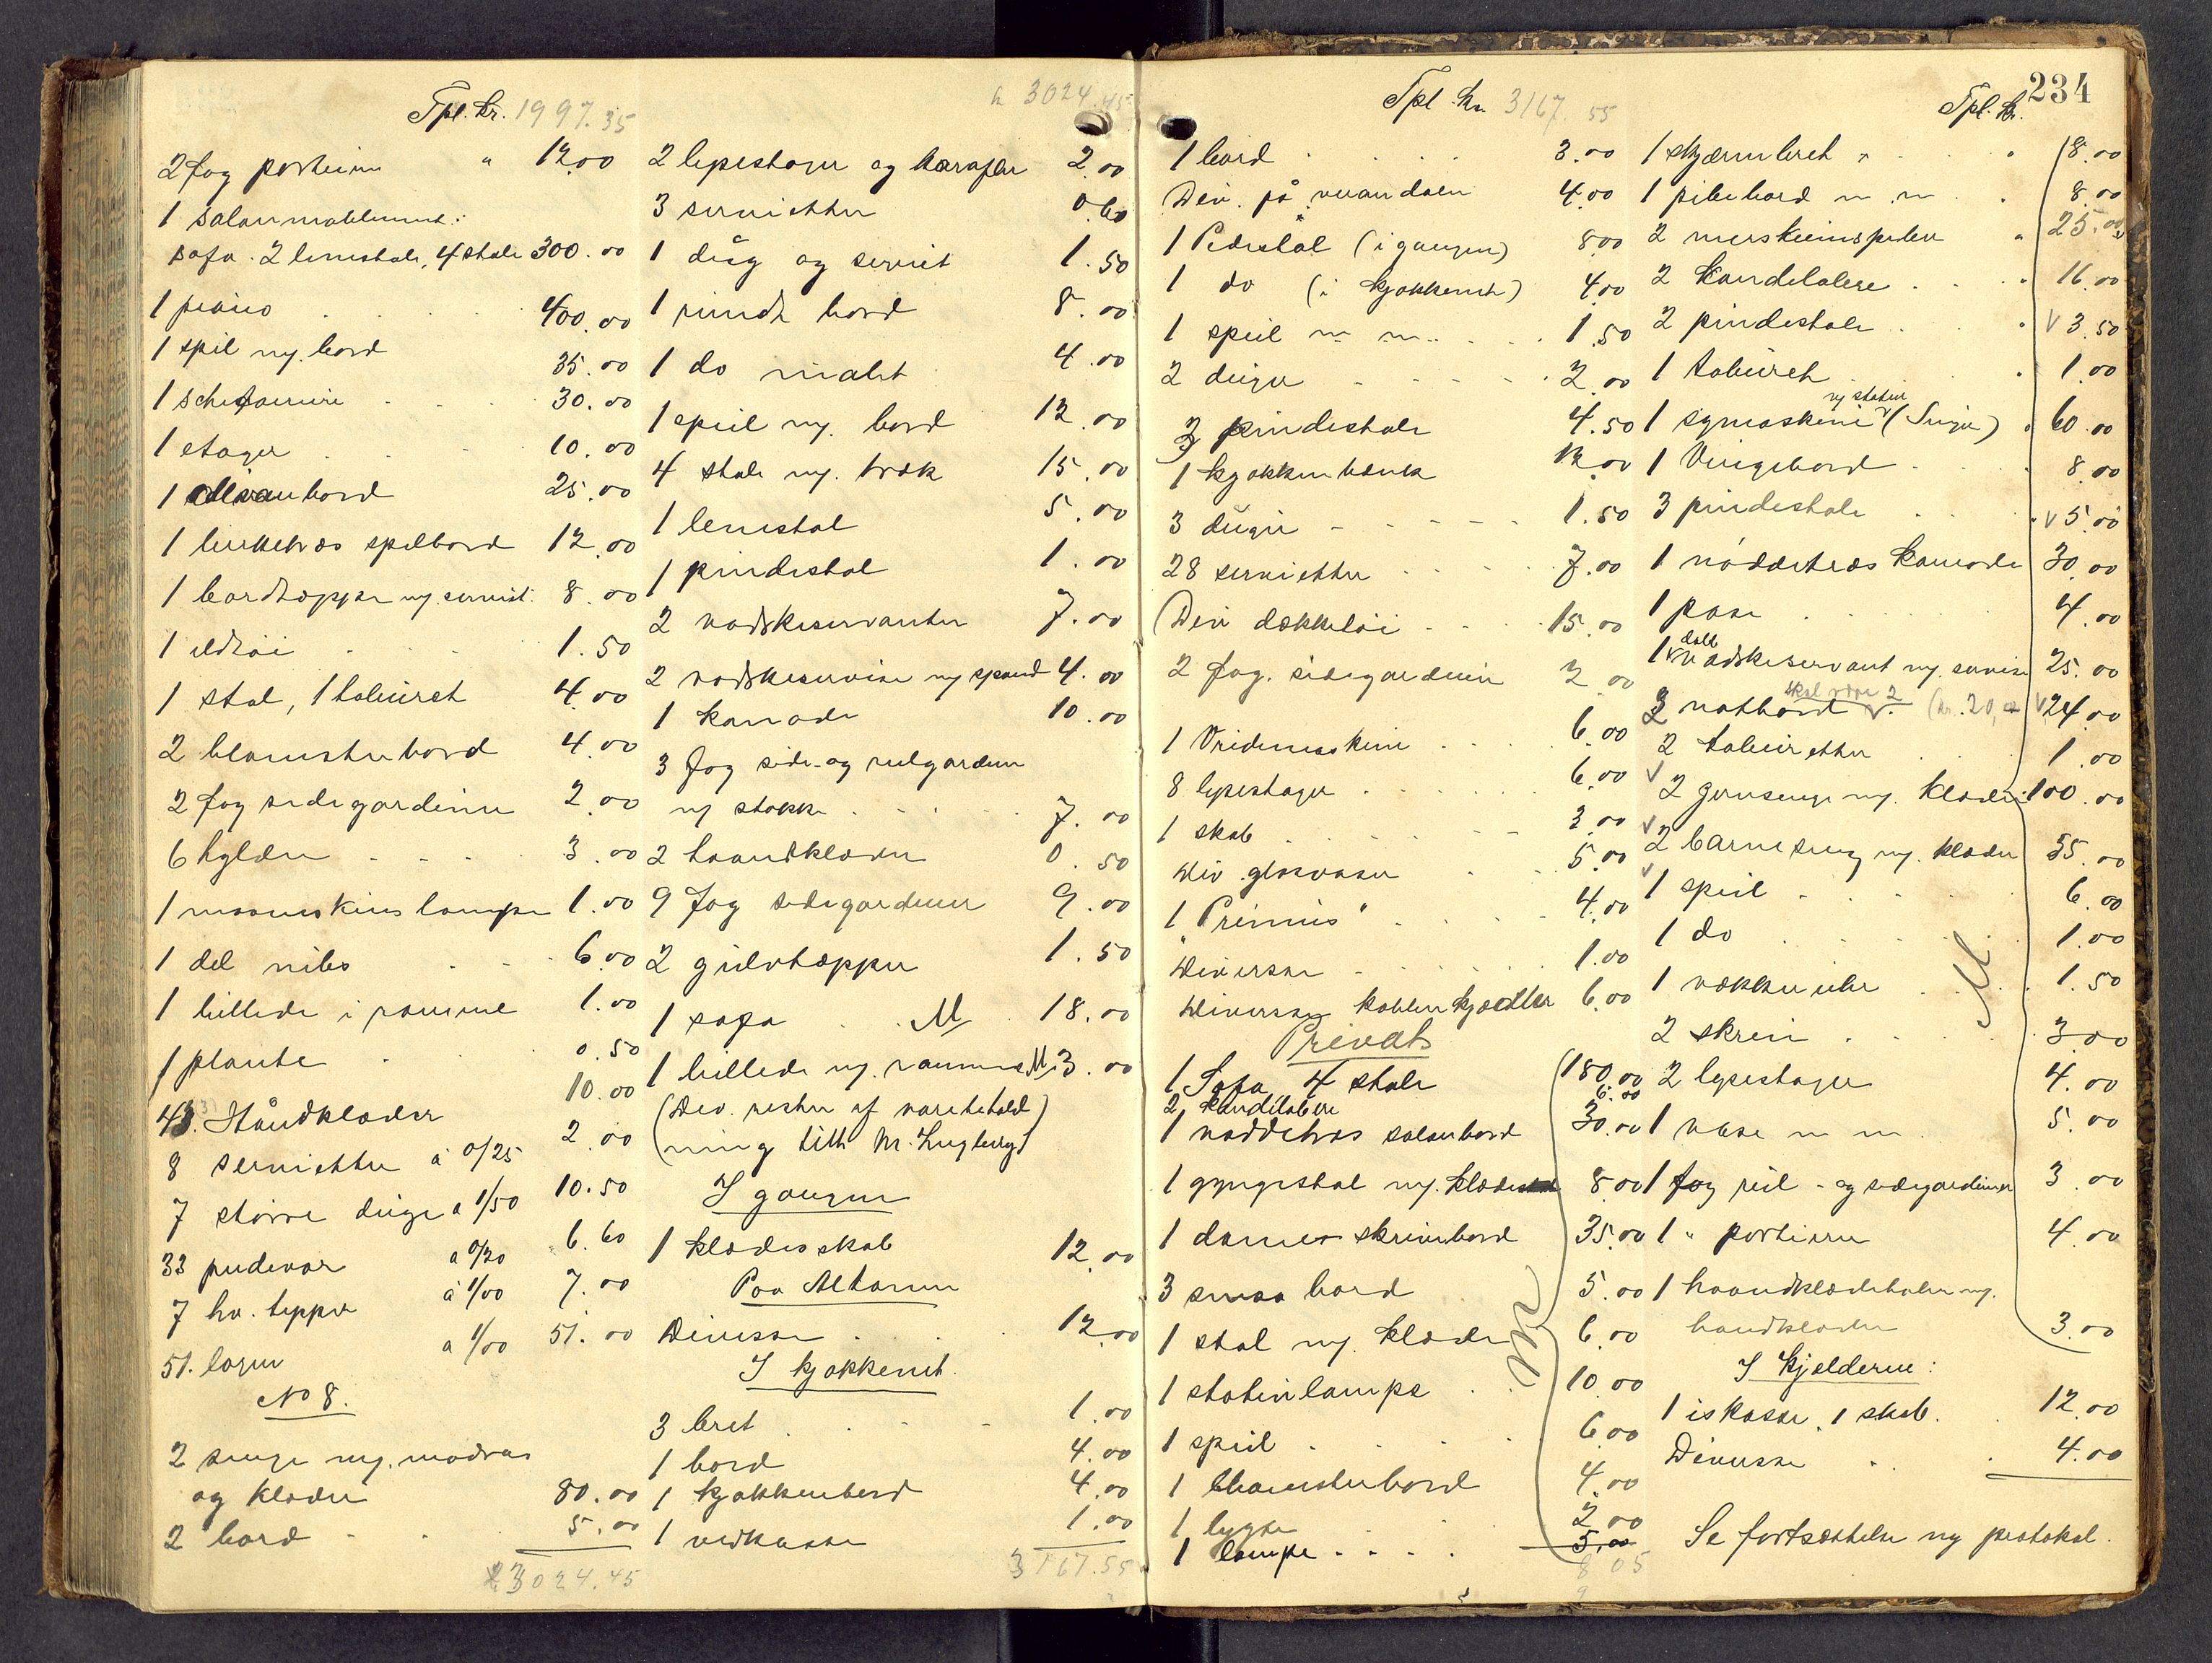 Tpl. kr. 1997.35
2 Fag portierer " 12.00
1 salonmøblement:
sofa. 2 lenestole, 4 stole 300.00
1 piano 400.00
1 speil m/. bord 35.00
1 30.00
1 etager 10.00
1 divanbord 25.00
1 birketræs spilbord 12.00
1 bordteppe m/. serviet. 8.00
1 ildtøi 1.50
1 stol, 1 tabùret 4.00
2 blomsterbord 4.00
2 Fag sidegardiner 2.00
6 hylder 3.00
1 maaneskinslampe 1.00
1 del nibs 6.00
1 billede i ramme 1.00
1 plante 0.50
43. Håndklæder 10.00
8 servietter à 0/25 2.00
7 større duge à 1/50 10.50
33 pudevar à 0/20 6.60
7 hv. tepper à 1/00 7.00
51. lagen à 1/00 51.00
No 8.
2 senge m/. madras
og klæder 80.00
2 bord 5.00
3024.45
kr 3024.45
2 lysestager og karafler 2.00
3 servietter 0.60
1 dug og serviet 1.50
1 rundt bord 8.00
1 do malet 4.00
1 speil m/. bord 12.00
4 stole m/. træk 15.00
1 lenestol 5.00
1 pindestol 1.00
2 vadskeservanter 7.00
2 vadskeservise m/ spand 4.00
1 komode 10.00
3 Fag side- og rulgardiner
m/ stokke 7.00
2 haandklæder 0.50
9 Fag sidegardiner 9.00
2 gulvtepper 1.50
1 sofa M 18.00
1 billede m/. ramme M 3.00
(Div. rester af varebehold
ning tilh. hr. )
I gangen
1 klædesskab 12.00
Paa Altanen
Diverse 12.00
I kjøkkenet.
3 bret 1.00
1 bord 4.00
1 kjøkkenbord 4.00
1 vedkasse 1.00
3167.55
Tpl. kr. 3167.55
1 bord 3.00
Div. på verandaen 4.00
1 Pidestal (i gangen) 8.00
1 do (i kjøkkenet) 4.00
1 speil m. m. 1.50
2 duger 2.00
3 pindestole 4.50
1 kjøkkenbænk 12.00
3 duger 1.50
28 servietter 7.00
Div dækketøi 15.00
2 Fag. sidegardiner 2.00
1 Vridemaskine 6.00
8 lysestager 6.00
1 skab 3.00
Div. glasvaser 5.00
1 "Primus" 4.00
Diverse 1.00
Diverse kobberkjedler 6.00
Privat
1 Sofa 4 stole 180.00
2 kandelabere 6.00
1 nøddetræs salonbord 30.00
1 gyngestol m/. klæde 8.00
1 dameskrivebord 35.00
3 smaa bord 5.00
1 stol m/. klæde 6.00
1 stativlampe 10.00
1 speil 6.00
1 blomsterbord 4.00
1 lygte 2.00
1 lampe 5.00
m
8 05
9
234
Tpl. kr.
1 skjærmbret 18.00
1 pibebord m. m 8.00
2 merskumspiber 25.00
2 Kandelabere 16.00
2 pindestole V 3.50
1 tabùret 1.00
m/ stativ
1 symaskine V (Singer) 60.00
1 Vingebord 8.00
3 pindestole V 5.00
1 nøddetræs Komode 30.00
1 vase 4.00
dobb
1 vadskeservant m/. servise 25.00
skal være 2
3 natbord V. (kr. 20, V 24.00
2 tabùretter 1.00
V 2 jernsenge m/. klæder 100.00
V 2 barneseng m/. klæder 55.00
V 1 speil 6.00
1 do 1.00
1 vækkerùhr 1.50
2 skrin 3.00
M
2 lysestager 4.00
1 vase m m 5.00
1 Fag rul- og sidegardiner 3.00
1 " portierer 4.00
1 haandklædeholder m/.
haandklæder 3.00
I Kjelderne:
1 iskasse, 1 skab. 12.00
Diverse 4.00
Se fortsættelse ny protokol.